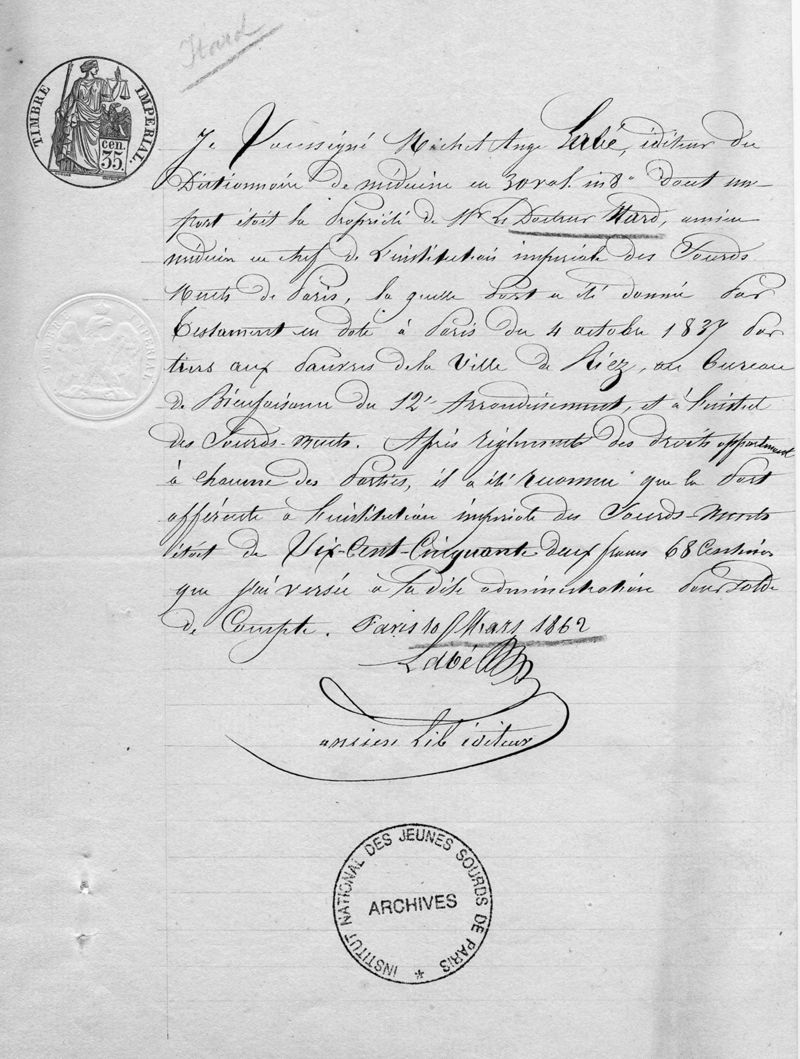 Itard
TIMBRE IMPERIAL.
cen.
35
Je Soussigné Michel Ange Labé, éditeur du
Dictionnaire de médecine en 30 vol. in 8° dont une
part était la propriété de Mr Le Docteur Itard, ancien
médecin en chef de L'institution impériale des Sourds
Muets de Paris, la quelle part a été donnée par
Testament en date à Paris du 4 octobre 1837 par
tiers aux pauvres de la Ville de Riez, au Bureau
de Bienfaisance du 12e Arrondissement, et à l'institut
des Sourds-Muets. Après règlement des droits appartenant
à chacune des parties, il a été reconnu que la part
afférente à l'institution impériale des Sourds-Muets
était de Six-Cent-Cinquante deux francs 68 Centimes
que j'ai versée à la dite administration pour solde
de Compte. Paris 10 Mars 1862
Labé
ancien Lib éditeur
INSTITUT NATIONAL DES JEUNES SOURDS DE PARIS *
ARCHIVES